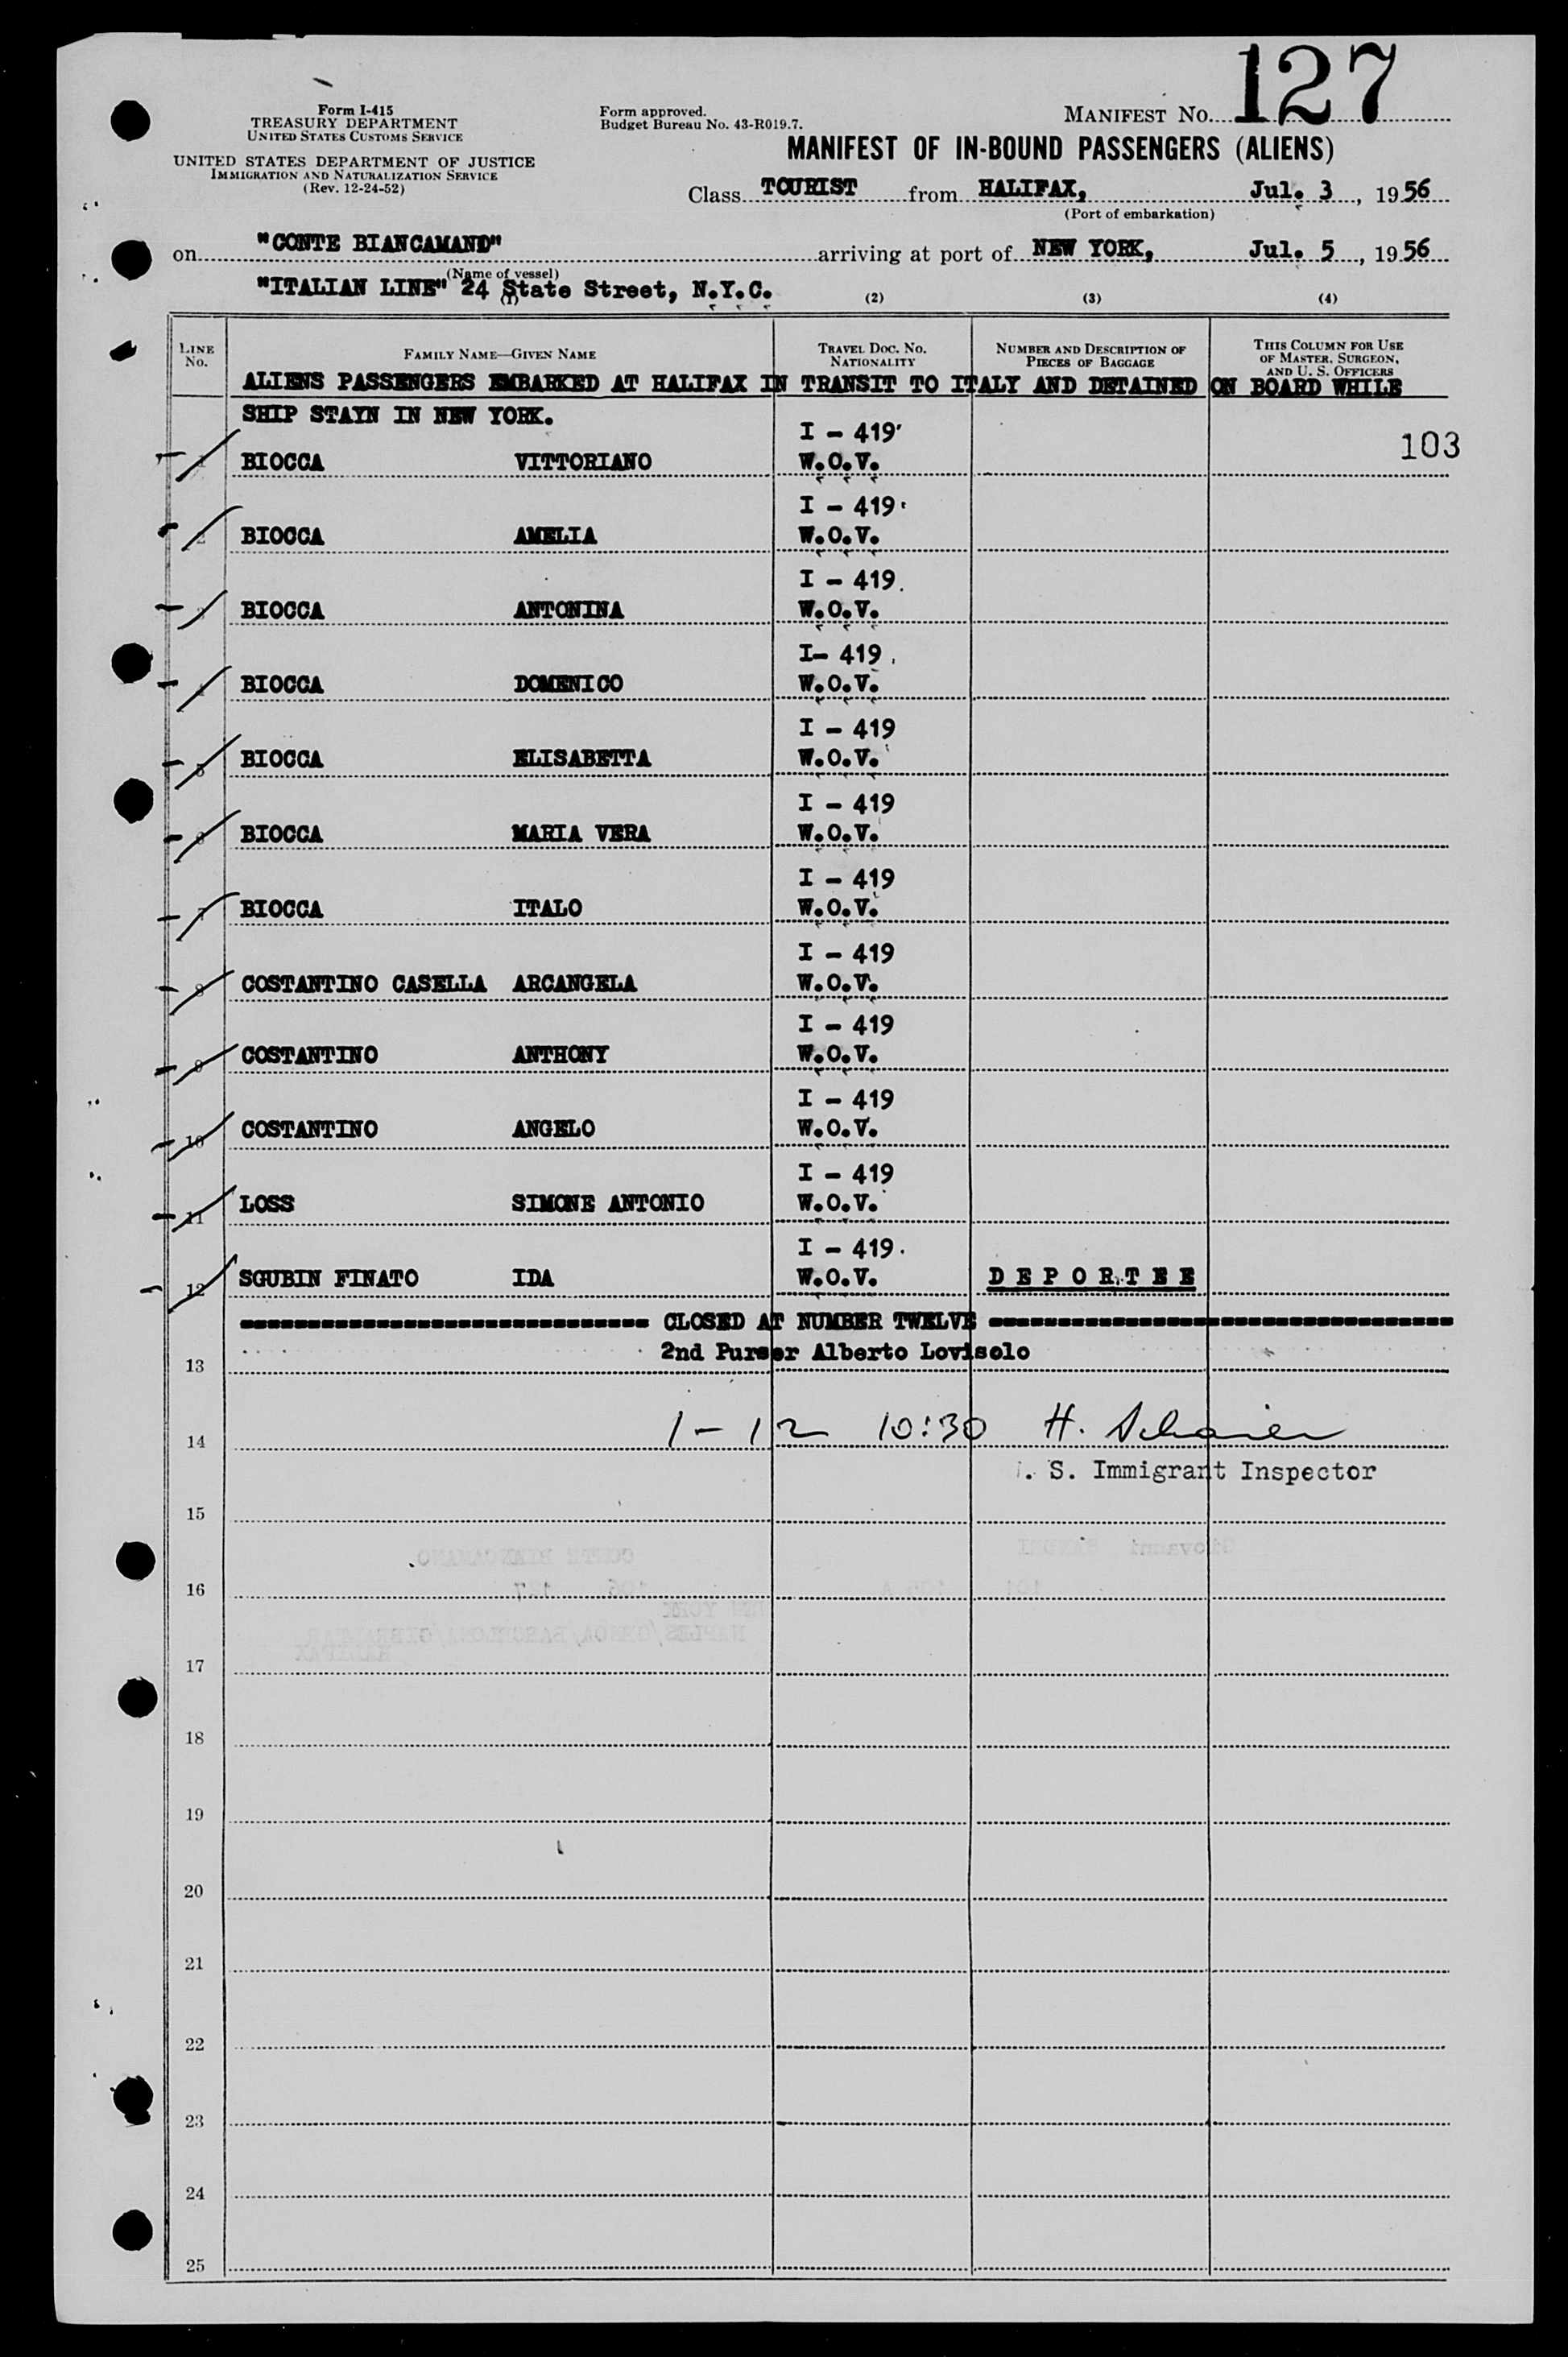 127
Form I-415
TREASURY DEPARTMENT
UNITED STATES CUSTOMS SERVICE
UNITED STATES DEPARTMENT OF JUSTICE
IMMIGRATION AND NATURALIZATION SERVICE
(Rev. 12-24-52)
Form approved.
Budget Bureau No. 43-R019.7.
MANIFEST No.
MANIFEST OF IN-BOUND PASSENGERS (ALIENS)
Class TOURIST from HALIFAX, Jul. 3, 1956
(Port of embarkation)
on "CONTE BIANCAMANO" arriving at port of NEW YORK, Jul. 5, 1956
(Name of vessel)
"ITALIAN LINE" 24 State Street, N.Y.C.
(1) (2) (3) (4)
LINE No. FAMILY NAME—GIVEN NAME TRAVEL DOC. No. NATIONALITY NUMBER AND DESCRIPTION OF PIECES OF BAGGAGE THIS COLUMN FOR USE OF MASTER, SURGEON, AND U. S. OFFICERS
ALIENS PASSENGERS EMBARKED AT HALIFAX IN TRANSIT TO ITALY AND DETAINED ON BOARD WHILE
SHIP STAYN IN NEW YORK.
I - 419
1 BIOCCA VITTORIANO W.O.V. 103
I - 419
2 BIOCCA AMELIA W.O.V.
I - 419
3 BIOCCA ANTONINA W.O.V.
I- 419
4 BIOCCA DOMENICO W.O.V.
I - 419
5 BIOCCA ELISABETTA W.O.V.
I - 419
6 BIOCCA MARIA VERA W.O.V.
I - 419
7 BIOCCA ITALO W.O.V.
I - 419
8 COSTANTINO CASELLA ARCANGELA W.O.V.
I - 419
9 COSTANTINO ANTHONY W.O.V.
I - 419
10 COSTANTINO ANGELO W.O.V.
I - 419
11 LOSS SIMONE ANTONIO W.O.V.
I - 419
12 SGUBIN FINATO IDA W.O.V. DEPORTEE
CLOSED AT NUMBER TWELVE
2nd Purser Alberto Lovisolo
13
1-12 10:30 H.
14
. S. Immigrant Inspector
15
16
17
18
19
20
21
22
23
24
25